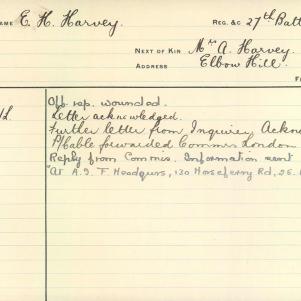 NAME E. H. Harvey. REG. &C 27th Batt
NEXT OF KIN Mrs A. Harvey.
ADDRESS Elbow Hill.
Off. rep. wounded.
Letter acknowledged.
Further letter from Inquirer, Ackno
P/Cable forwarded Commis London
Reply from Commis. Information sent
"At A.I.F Headqurs, 130 Horseferry Rd, 25.